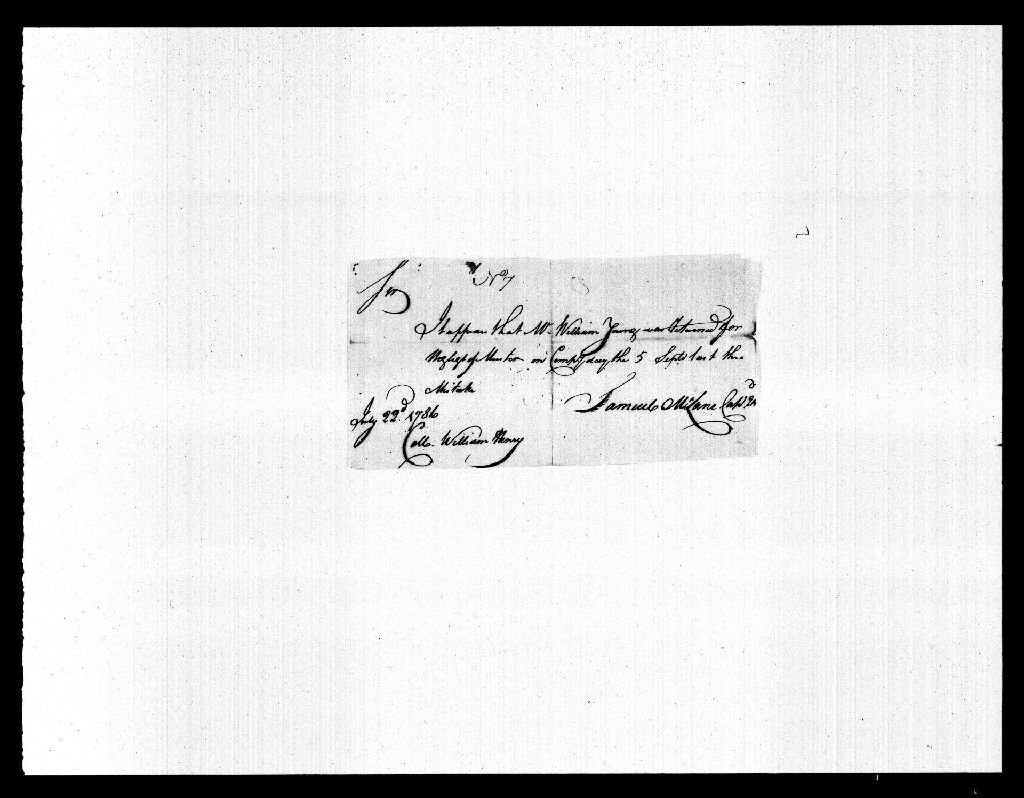 No 7
Sir
It appears that Mr William Young was Returned for
Neglect of Muster on Compy day the 5 Septr last thro
Mistake
Samuel McCane Capt.
July 22d 1786
Collo. William Henry